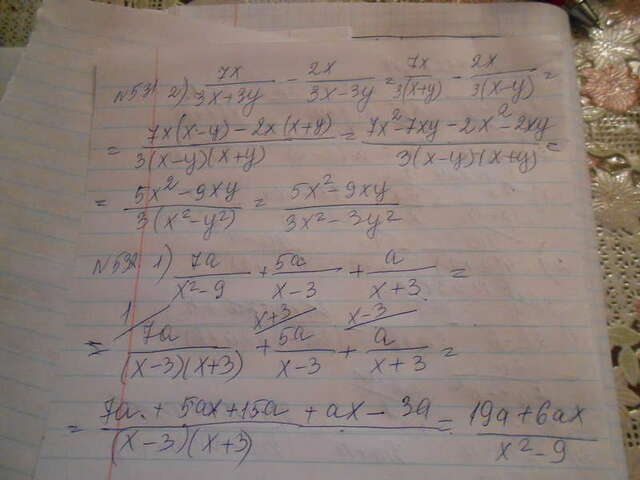 №531 2) 7x/(3x+3y) - 2x/(3x-3y) = 7x/3(x+y) - 2x/3(x-y) =
= (7x(x-y) - 2x(x+y))/(3(x-y)(x+y)) = (7x²-7xy-2x²-2xy)/(3(x-y)(x+y)) =
= (5x²-9xy)/(3(x²-y²)) = (5x²-9xy)/(3x²-3y²)
№532 1) 7a/(x²-9) + 5a/(x-3) + a/(x+3) =
1 x+3 x-3
= 7a/((x-3)(x+3)) + 5a/(x-3) + a/(x+3) =
= (7a + 5ax+15a + ax - 3a)/((x-3)(x+3)) = (19a+6ax)/(x²-9)